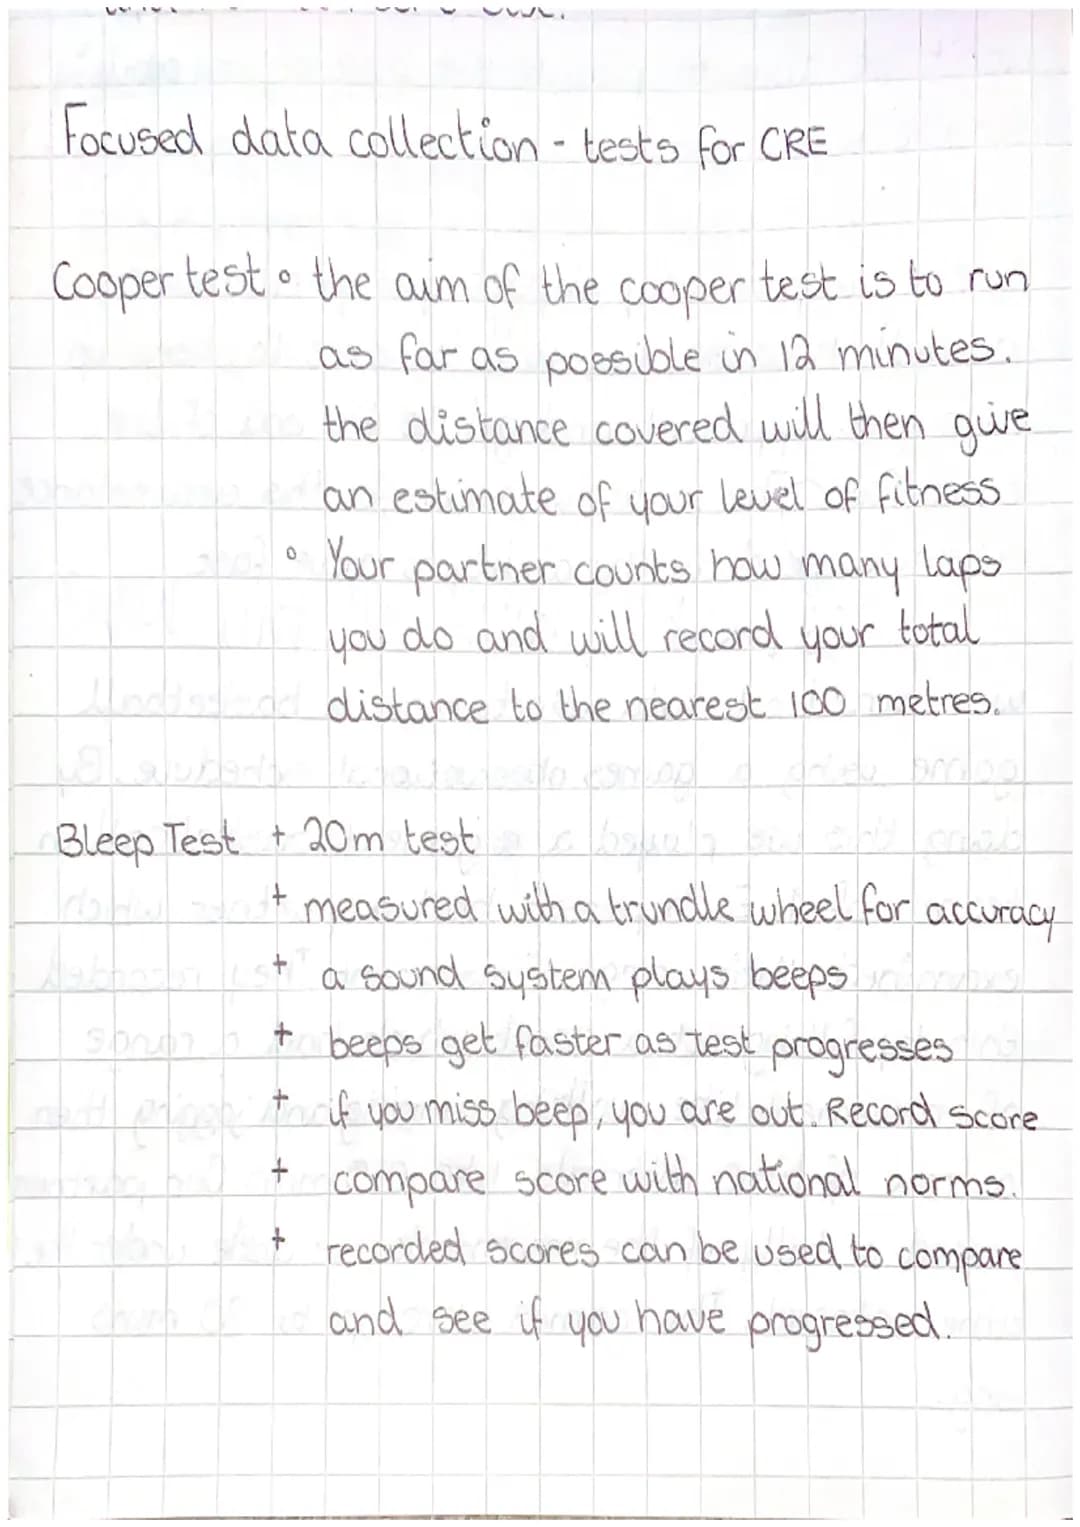 Focused data collection - tests for CRE
Cooper test ∘ the aim of the cooper test is to run
as far as possible in 12 minutes.
the distance covered will then give
an estimate of your level of fitness
∘ Your partner counts how many laps
you do and will record your total
distance to the nearest 100 metres.
Bleep Test + 20m test
+ measured with a trundle wheel for accuracy
+ a sound system plays beeps
+ beeps get faster as test progresses
+ if you miss beep, you are out. Record score
+ compare score with national norms.
+ recorded scores can be used to compare
and see if you have progressed.